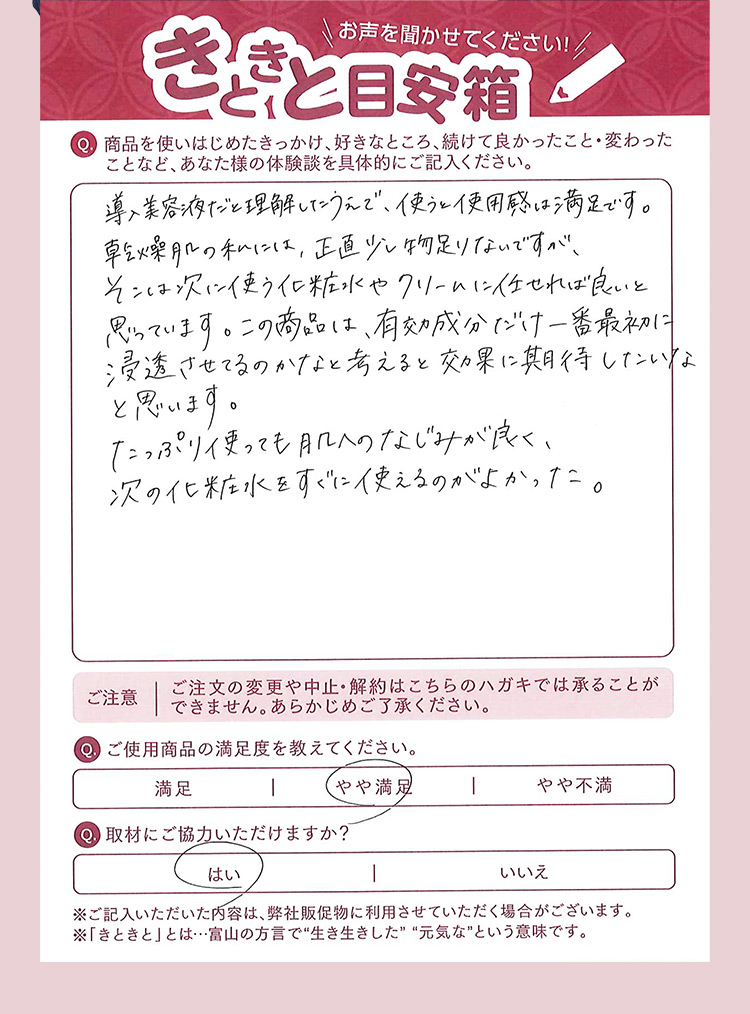 お声を聞かせてください!
きときと目安箱
Q. 商品を使いはじめたきっかけ、好きなところ、続けて良かったこと・変わった
ことなど、あなた様の体験談を具体的にご記入ください。
導入美容液だと理解したうえで、使うと使用感は満足です。
乾燥肌の私には、正直少し物足りないですが、
そこは次に使う化粧水やクリームに任せれば良いと
思っています。この商品は、有効成分だけ一番最初に
浸透させてるのかなと考えると効果に期待したいな
と思います。
たっぷり使っても肌へのなじみが良く、
次の化粧水をすぐに使えるのがよかった。
ご注意 ご注文の変更や中止・解約はこちらのハガキでは承ることが
できません。あらかじめご了承ください。
Q. ご使用商品の満足度を教えてください。
満足 | やや満足 | やや不満
Q. 取材にご協力いただけますか?
はい | いいえ
※ご記入いただいた内容は、弊社販促物に利用させていただく場合がございます。
※「きときと」とは…富山の方言で“生き生きした” “元気な”という意味です。